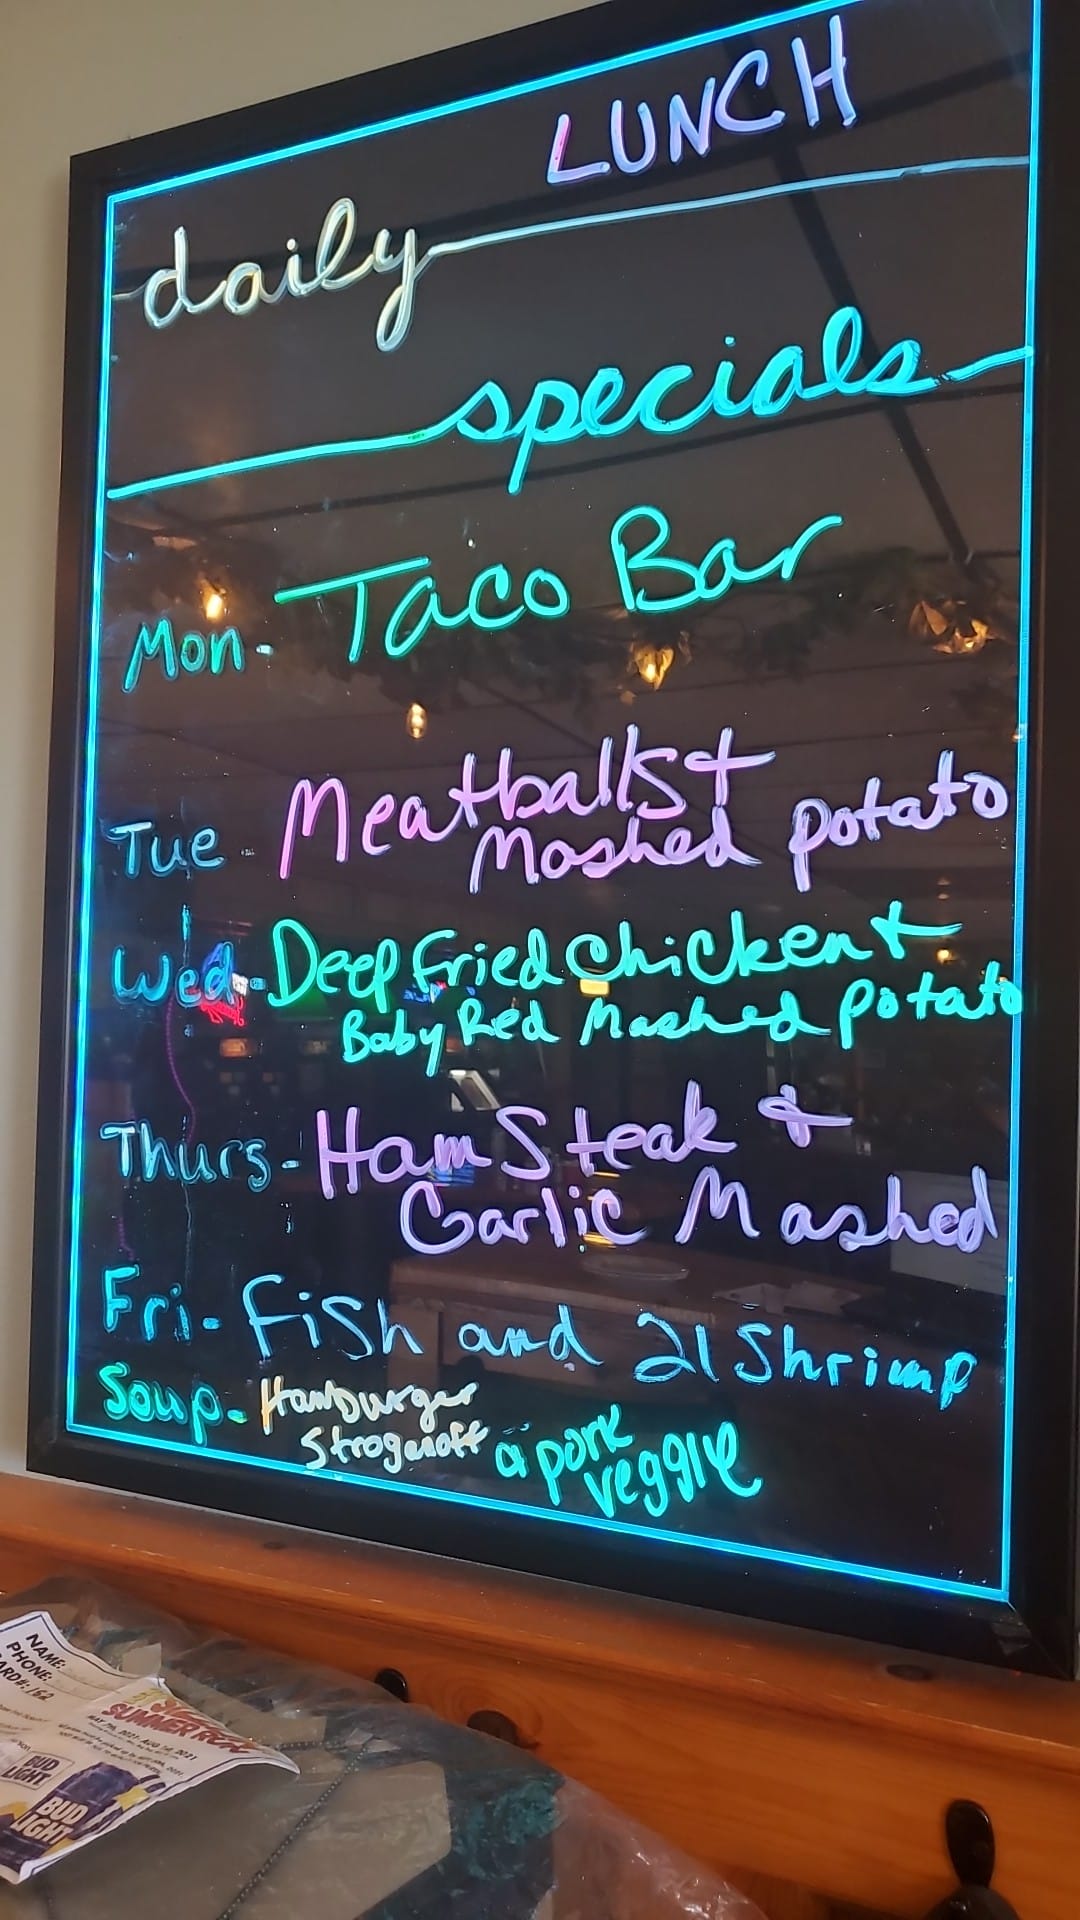 LUNCH
daily
specials
Mon- Taco Bar
Tue - Meatballs +
Mashed potato
Wed- Deep Fried Chicken +
Baby Red Mashed potato
Thurs- Ham Steak +
Garlic Mashed
Fri- Fish and 21 Shrimp
Soup- Hamburger
Stroganoff
a pork
veggie
NAME:
PHONE:
CARD#: 162
SUMMER
MAY 7th, 2021- AUG 1st, 2021
BUD
LIGHT
BUD
LIGHT